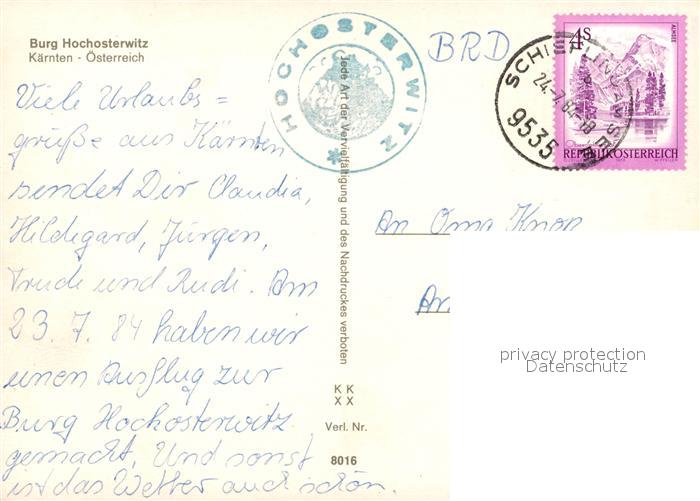 Burg Hochosterwitz
Kärnten - Österreich
Viele Urlaubs =
grüße aus Kärnten
sendet Dir Claudia,
Hildegard, Jürgen,
Trude und Rudi. Am
23. 7. 84 haben wir
einen Ausflug zur
Burg Hochosterwitz
gemacht. Und sonst
ist das Wetter auch schön.
HOCHOSTERWITZ
Jede Art der Vervielfältigung und des Nachdruckes verboten
K K
X X
Verl. Nr.
8016
BRD
4 S
ALMSEE
REPUBLIK ÖSTERREICH
24.-7.84-18
9535
An Oma Knop
privacy protection
Datenschutz